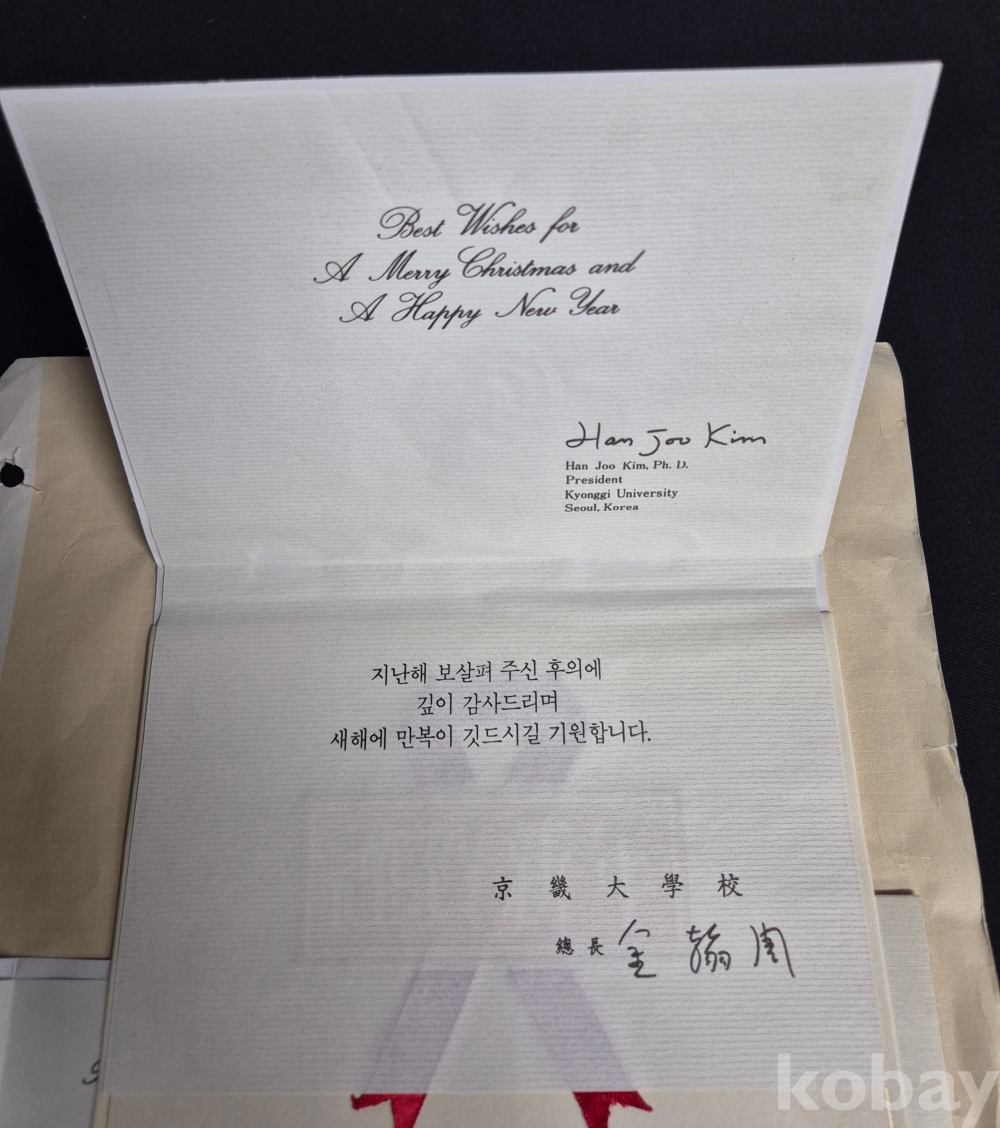 Best Wishes for
A Merry Christmas and
A Happy New Year
Han Joo Kim
Han Joo Kim, Ph. D.
President
Kyonggi University
Seoul, Korea
지난해 보살펴 주신 후의에
깊이 감사드리며
새해에 만복이 깃드시길 기원합니다.
京畿大學校
總長 金翰周
kobay